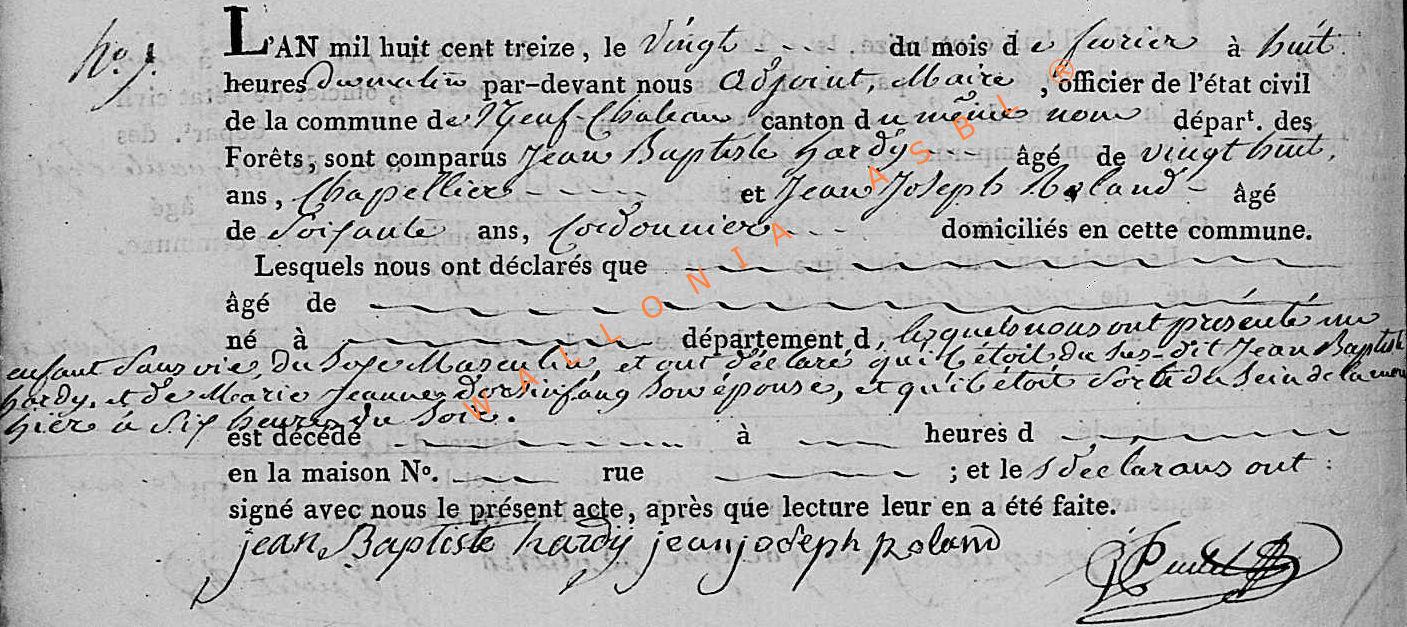 L'AN mil huit cent treize, le Vingt du mois de fevrier à huit
heures Dumatin par-devant nous adjoint, Maire, officier de l'état civil
de la commune de Neuf-Chateau canton du même nom départ. des
Forêts, sont comparus Jean Baptiste hardy âgé de vingt huit,
ans, Chapellier et Jean Joseph Roland âgé
de Soixante ans, Cordonnier domiciliés en cette commune.
Lesquels nous ont déclarés que
âgé de
né à département d, lesquels nous ont presenté un
enfant Sans vie, du Sexe Masculin, et ont déclaré qu'il étoit du Sus-dit Jean Baptiste
hardy, et de Marie Jeanne Son épouse, et qu'il étoit Sorti du Sein de la mere
hier à Six heures du Soir.
est décédé à heures d
en la maison N°. rue ; et les déclarans ont
signé avec nous le présent acte, après que lecture leur en a été faite.
jean Baptiste hardy jean joseph roland
WALLONIA ASBL ®